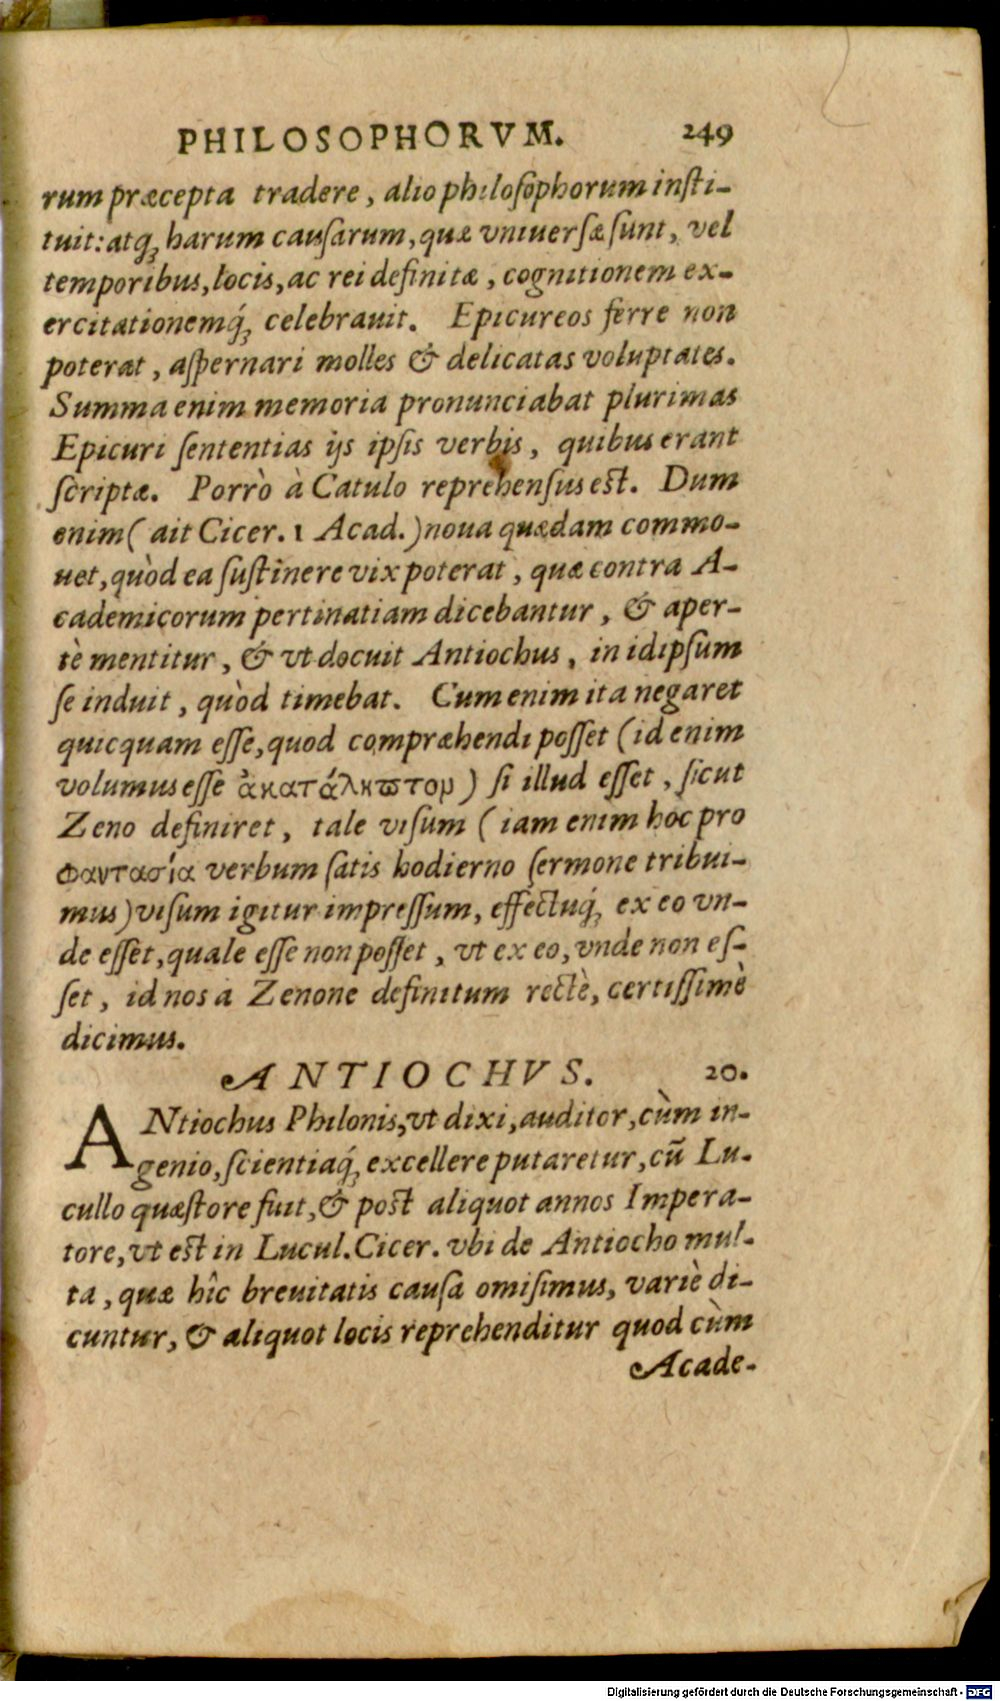 PHILOSOPHORVM. 249
rum præcepta tradere, alio philoſophorum inſti-
tuit: atq́; harum cauſarum, quæ vniuerſæ ſunt, vel
temporibus, locis, ac rei definitæ, cognitionem ex-
ercitationemq́; celebrauit. Epicureos ferre non
poterat, aſpernari molles & delicatas voluptates.
Summa enim memoria pronunciabat plurimas
Epicuri ſententias ijs ipſis verbis, quibus erant
ſcriptæ. Porrò à Catulo reprehenſus est. Dum
enim (ait Cicer. 1 Acad.) noua quædam commo-
uet, quòd ea ſuſtinere vix poterat, quæ contra A-
cademicorum pertinatiam dicebantur, & aper-
tè mentitur, & vt docuit Antiochus, in idipſum
ſe induit, quòd timebat. Cum enim ita negaret
quicquam eſſe, quod compræhendi poſſet (id enim
volumus eſſe ἀκατάλκϖτορ) ſi illud eſſet, ſicut
Zeno definiret, tale viſum (iam enim hoc pro
φαντασία verbum ſatis hodierno ſermone tribui-
mus) viſum igitur impreſſum, effectuq́; ex eo vn-
de eſſet, quale eſſe non poſſet, vt ex eo, vnde non eſ-
ſet, id nos a Zenone definitum rectè, certiſſimè
dicimus.
ANTIOCHVS. 20.
ANtiochus Philonis, vt dixi, auditor, cùm in-
genio, ſcientiaq́; excellere putaretur, cū Lu-
cullo quæſtore fuit, & post aliquot annos Impera-
tore, vt est in Lucul. Cicer. vbi de Antiocho mul-
ta, quæ hîc breuitatis cauſa omiſimus, variè di-
cuntur, & aliquot locis reprehenditur quod cùm
Acade-
Digitalisierung gefördert durch die Deutsche Forschungsgemeinschaft - DFG